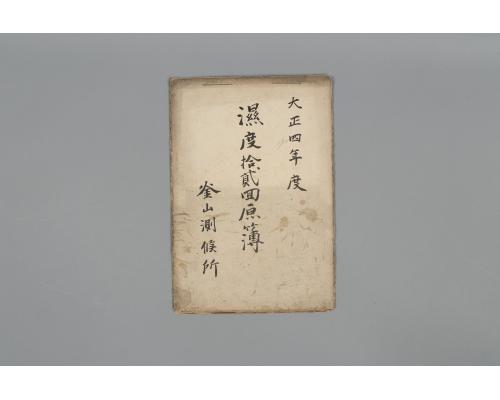 大正四年度
濕度拾貳回原簿
釜山測候所